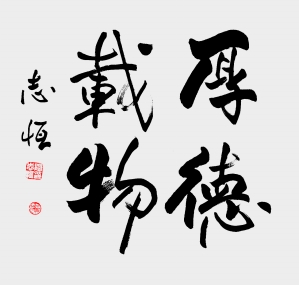 厚德
載物
志恒